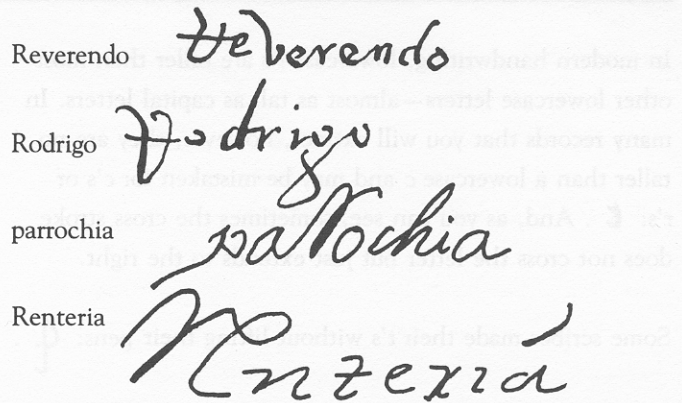 Reverendo Reverendo
Rodrigo Rodrigo
parrochia parrochia
Renteria Renteria